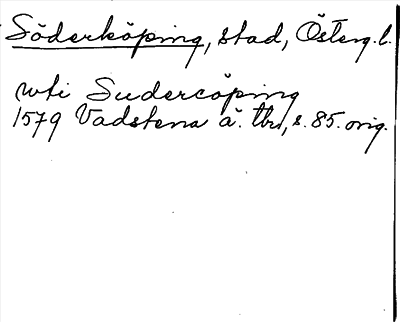 Söderköping, stad, Österg.l.
uti Sudercöping
1579 Vadstena ä. tbr, s. 85. orig.